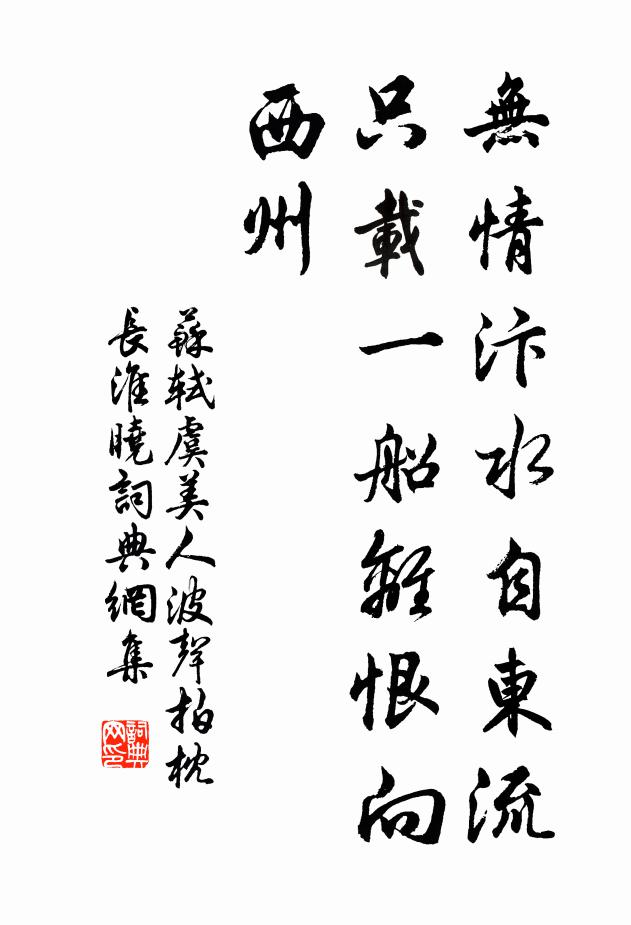 無情汴水自東流
只載一船離恨向
西州
蘇軾虞美人波聲拍枕
長淮曉詞典網集
詞典
网印